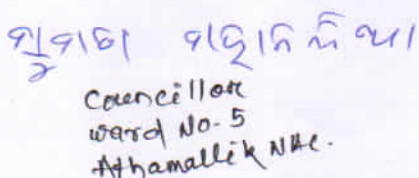 ମହାନନ୍ଦିଆ
Councillor
ward No-5
Athamallik NAC.